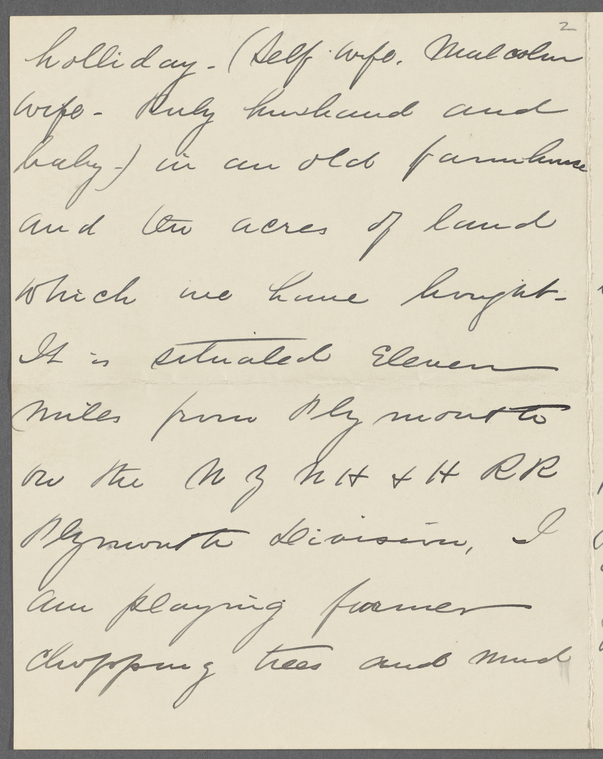 2
holliday - (Self. Wife. Malcolm
Wife - Ruby husband and
baby -) in an old farmhouse
and ten acres of land
which we have bought -
It is situated Eleven
miles from Plymouth
on the N Y N H & H RR
Plymouth Division, I
am playing farmer
chopping trees and mud